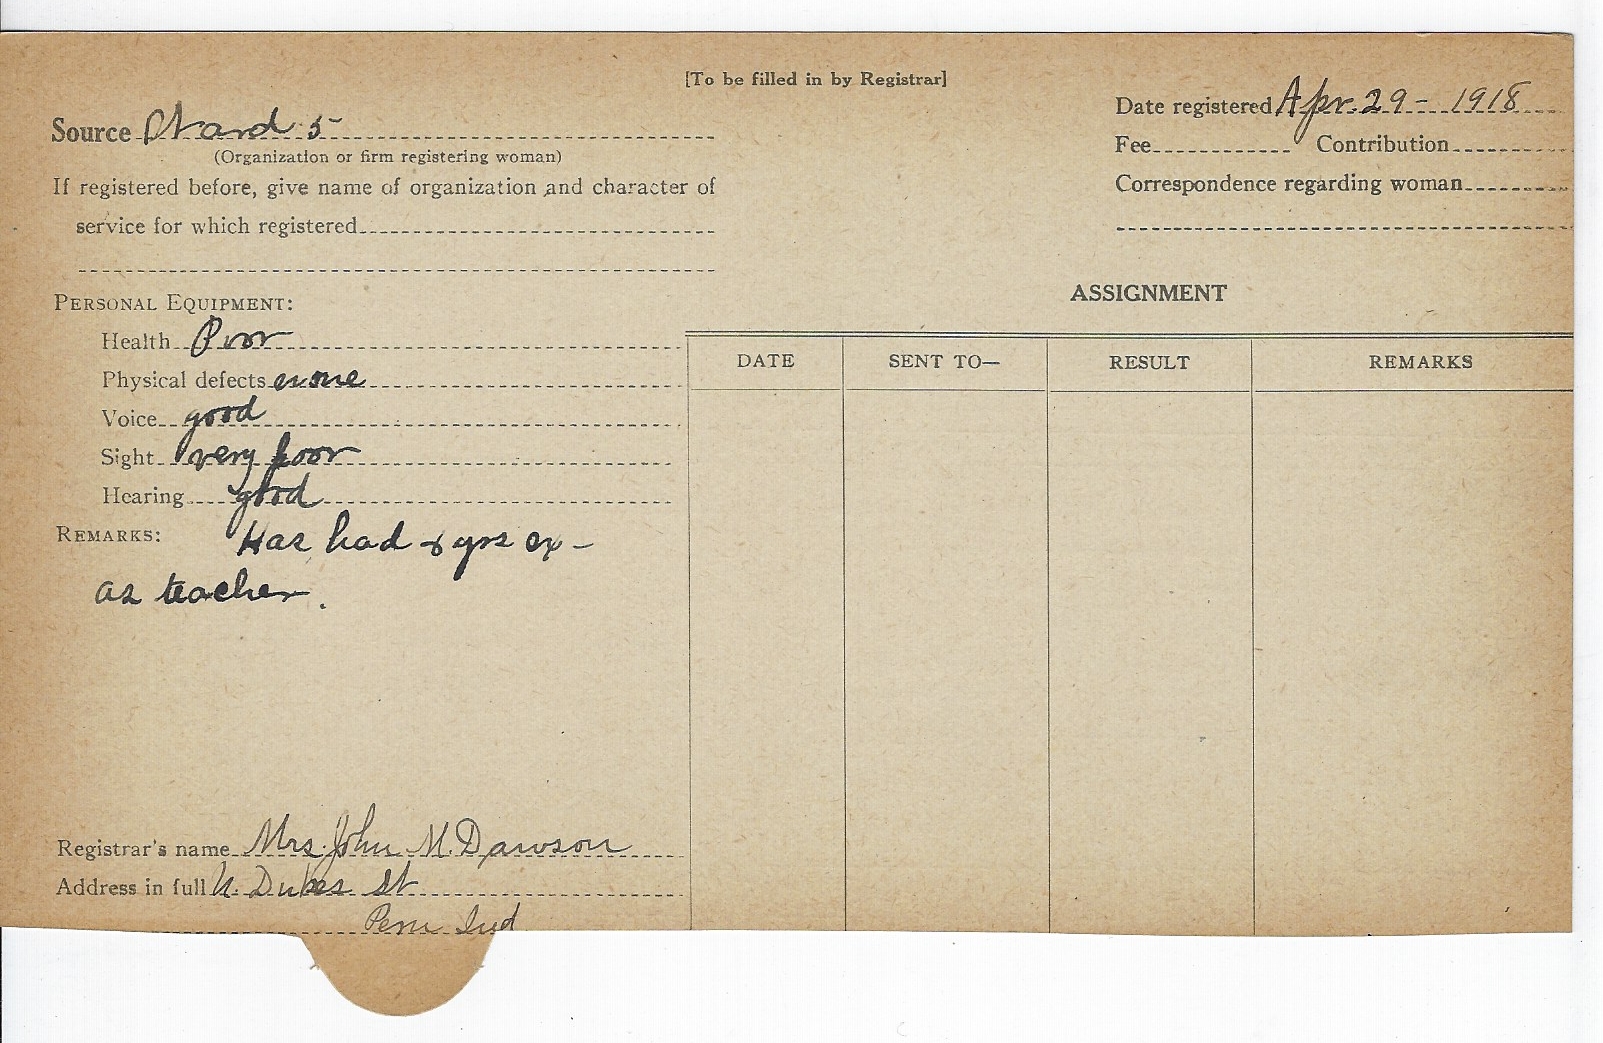 [To be filled in by Registrar]
Source Ward 5
(Organization or firm registering woman)
If registered before, give name of organization and character of
service for which registered
Date registered Apr. 29 - 1918
Fee Contribution
Correspondence regarding woman
PERSONAL EQUIPMENT:
Health Poor
Physical defects none
Voice good
Sight very poor
Hearing good
REMARKS: Has had yrs ex-
as teacher.
ASSIGNMENT
DATE SENT TO— RESULT REMARKS
Registrar's name Mrs. John M. Dawson
Address in full N. Dukes St
Peru Ind